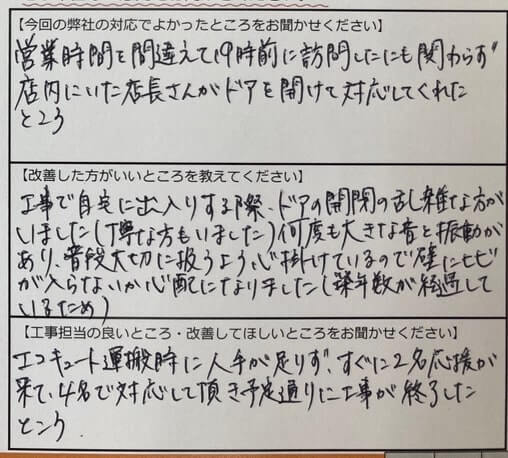 【今回の弊社の対応でよかったところをお聞かせください】
営業時間を間違えて19時前に訪問したにも関わらず
店内にいた店長さんがドアを開けて対応してくれた
ところ
【改善した方がいいところを教えてください】
工事で自宅に出入りする際、ドアの開閉の乱雑な方が
いました(丁寧な方もいました)何度も大きな音と振動が
あり、普段大切に扱うよう心掛けているので壁にヒビ
が入らないか心配になりました(築年数が経過して
いるため)
【工事担当の良いところ・改善してほしいところをお聞かせください】
エコキュート運搬時に人手が足りず、すぐに2名応援が
来て、4名で対応して頂き予定通りに工事が終了した
ところ